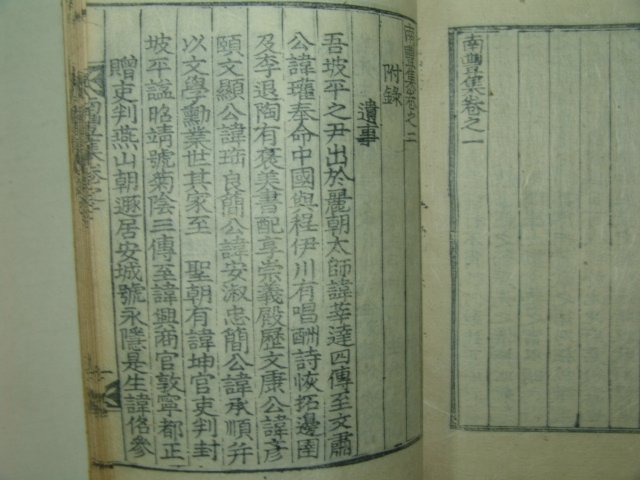 南豐集卷之一
南豐集卷之二
附錄
遺事
吾坡平之尹出於麗朝太師諱莘達四傳至文肅
公諱瓘奉命中國與程伊川有唱酬詩恢拓邊圉
及李退陶有褒美書配享崇義殿歷文康公諱彦
頤文顯公諱珤良簡公諱安淑忠簡公諱承順并
以文學勳業世其家至 聖朝有諱坤官吏判封
坡平諡昭靖號菊陰三傳至諱興商官敦寧都正
贈吏判燕山朝遯居安城號永隱是生諱佲參
南豐集卷之二